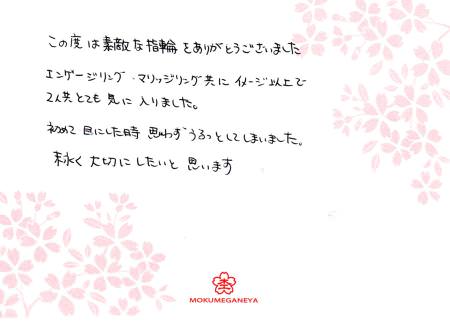 この度は素敵な指輪をありがとうございました
エンゲージリング・マリッジリング共にイメージ以上で
2人共とても気に入りました。
初めて目にした時思わずうるっとしてしまいました。
末永く大切にしたいと思います
MOKUMEGANEYA